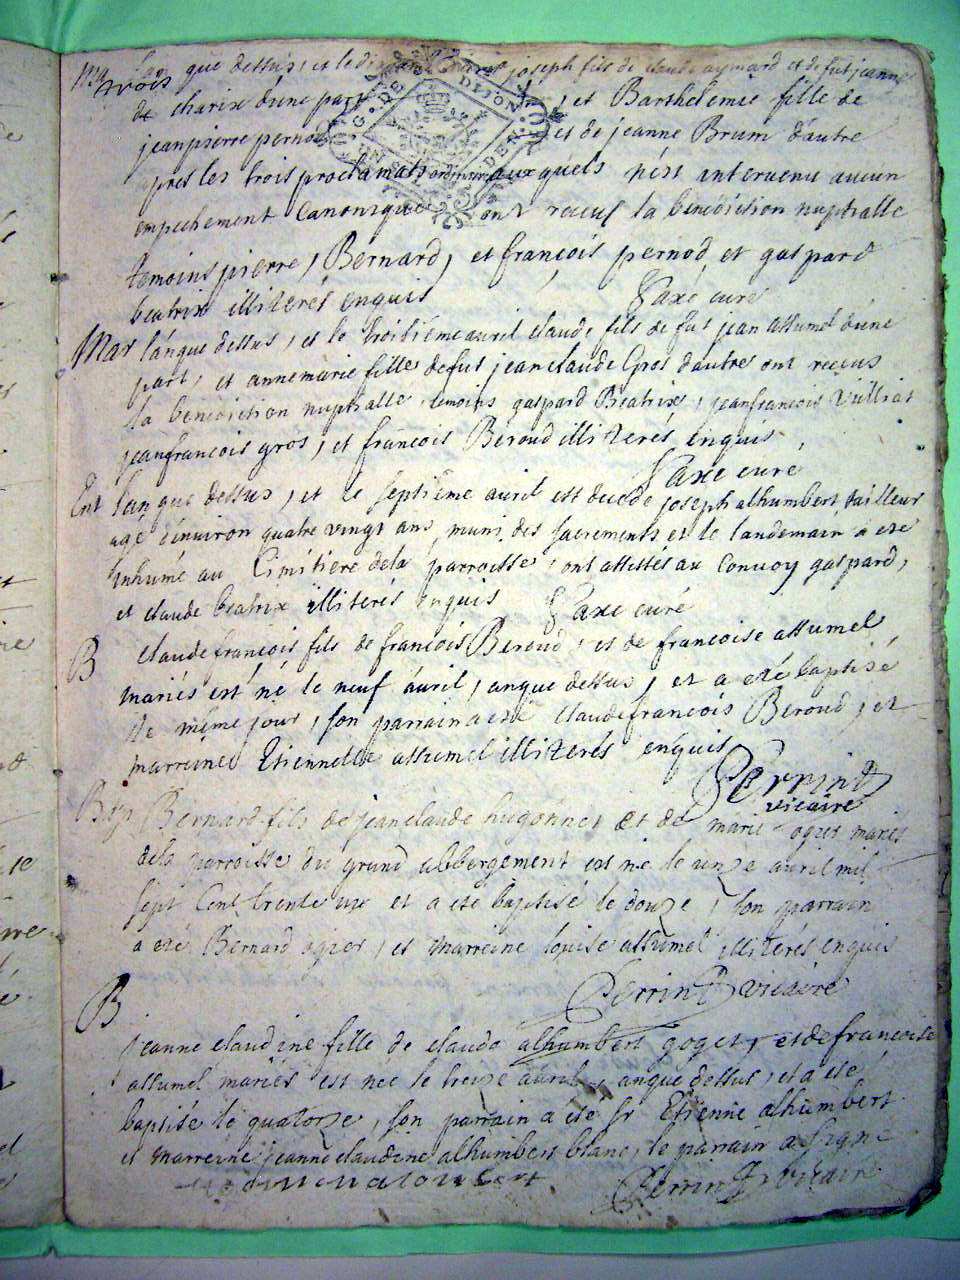 Ma l'an que dessus, et le joseph fils de claude aymard et de fut jeanne
trois
de charix dune part et Barthelemie fille de
G. DE DIJON
jeanpierre pernod et de jeanne Brum d'autre
apres les trois proclamats ordinaires auxquels n'est intervenu aucun
empechement Canonique ont receus la benediction nuptialle
temoins pierre, Bernard, et françois pernod et gaspard
beatrix illiterés enquis Saxe curé
Mar l'an que dessus, et le troisiéme avril claude fils de fut jean assumel d'une
part, et annemarie fille de fut jeanclaude Gros d'autre ont receus
la benediction nuptialle, temoins gaspard Beatrix, jeanfrancois Vulliat
jeanfrancois gros, et francois Beroud illiterés enquis,
Saxe curé
Ent l'an que dessus, et le septiéme avril est decede joseph alhumbert tailleur
agé d'environ quatre vingt ans, muni des sacrements et le landemain a eté
inhumé au Cimitiere de la parroisse, ont assistés au Convoy gaspard,
et claude beatrix illiterés enquis Saxe curé
B claudefrançois fils de françois Beroud, et de francoise assumel
mariés est né le neuf avril, anque dessus, et a eté baptisé
le même jour, son parrain a eté claudefrancois Beroud, et
marreine Etiennette assumel illiterés enquis
Perrin
vicaire
Bernard fils de jeanclaude hugonnet et de marie ogier mariés
de la parroisse du grand abbergement est né le unze avril mil
sept Cent trente et a eté baptisé le douze, son parrain
a eté Bernard ogier, et marreine louise assumel illiterés enquis
Perrin vicaire
B
jeanne claudine fille de claude alhumbert goget, et de francoise
assumel mariés est née le treize avril anque dessus, et a eté
baptisé le quatorze, son parrain a eté Sr Etienne alhumbert
et marreine jeanne claudine alhumbert blanc, le parrain a signé
Perrin vicaire